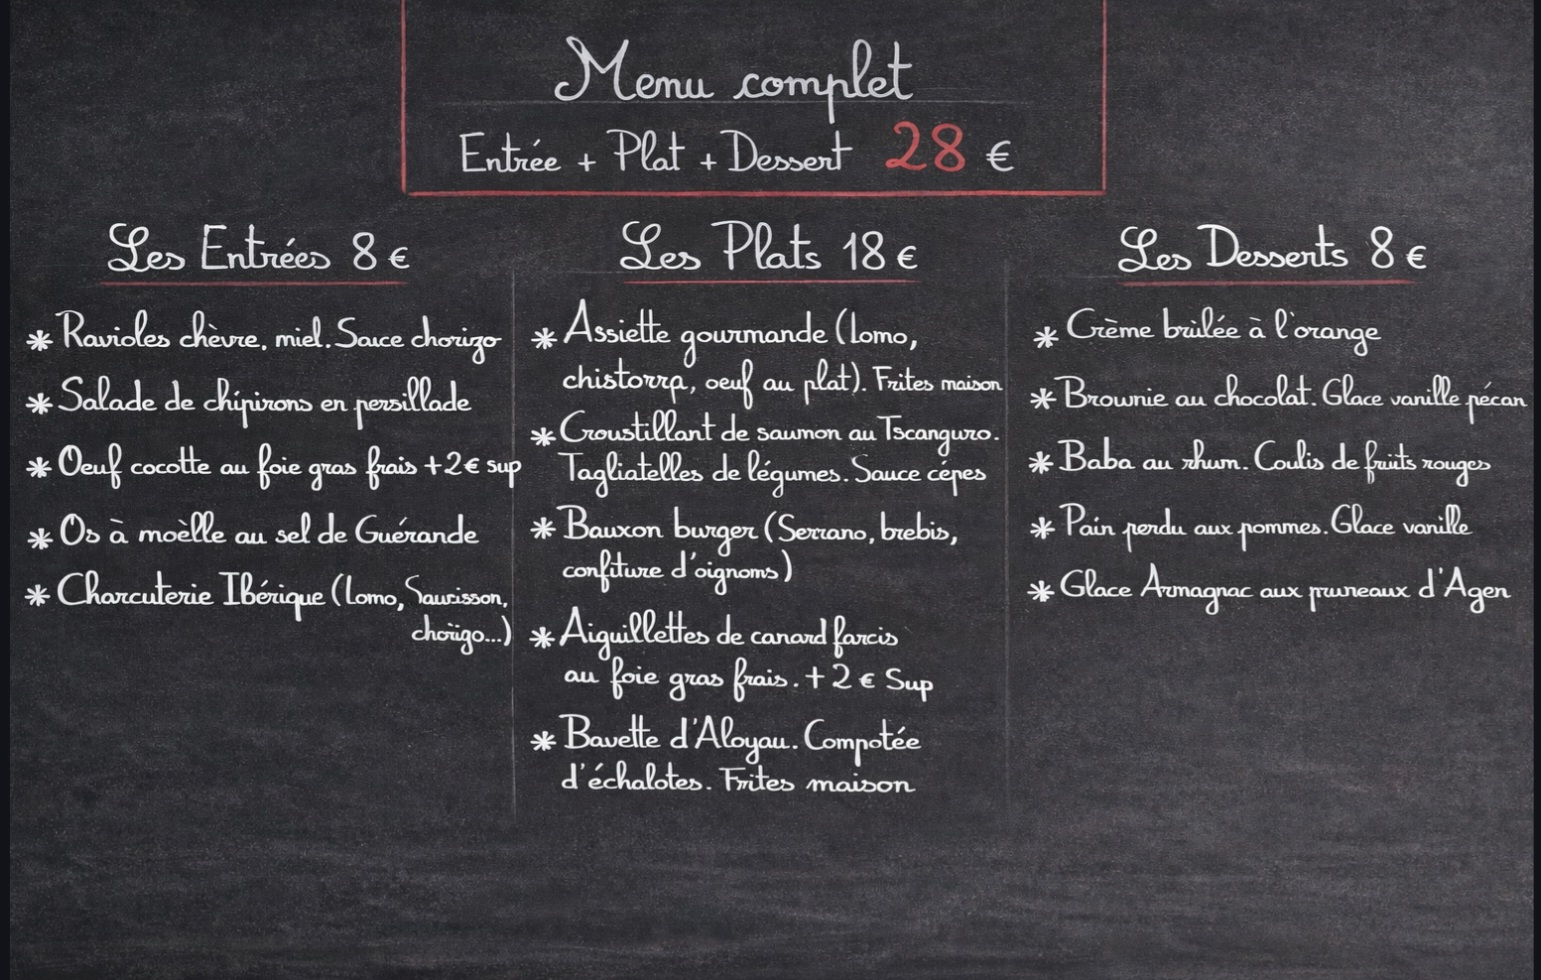 Menu complet
Entrée + Plat + Dessert 28 €
Les Entrées 8 €
* Ravioles chèvre, miel. Sauce chorizo
* Salade de chipirons en persillade
* Oeuf cocotte au foie gras frais +2€ sup
* Os à moèlle au sel de Guérande
* Charcuterie Ibérique (lomo, Saucisson,
chorizo...)
Les Plats 18 €
* Assiette gourmande (lomo,
chistorra, oeuf au plat). Frites maison
* Croustillant de saumon au Tscanguro.
Tagliatelles de légumes. Sauce cépes
* Bauxon burger (Serrano, brebis,
confiture d'oignons)
* Aiguillettes de canard farcis
au foie gras frais. + 2 € Sup
* Bavette d'Aloyau. Compotée
d'échalotes. Frites maison
Les Desserts 8 €
* Crème brûlée à l'orange
* Brownie au chocolat. Glace vanille pécan
* Baba au rhum. Coulis de fruits rouges
* Pain perdu aux pommes. Glace vanille
* Glace Armagnac aux pruneaux d'Agen